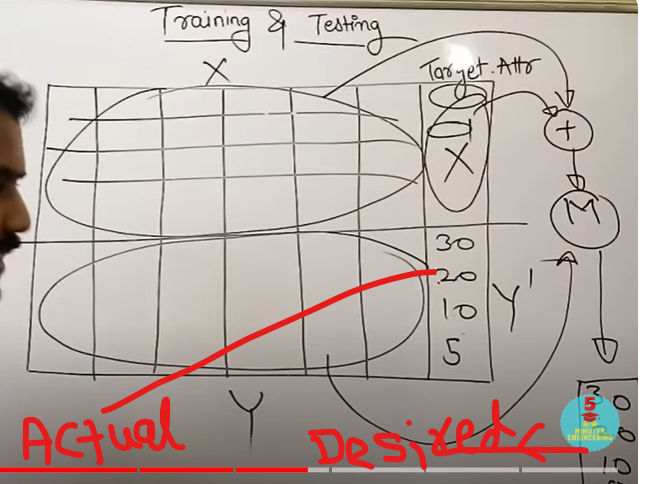 Training & Testing
X
Target. Attr
X
+
M
30
20
10
5
Y'
Y
Actual
Desired
30
5
MINUTES
ENGINEERING
10